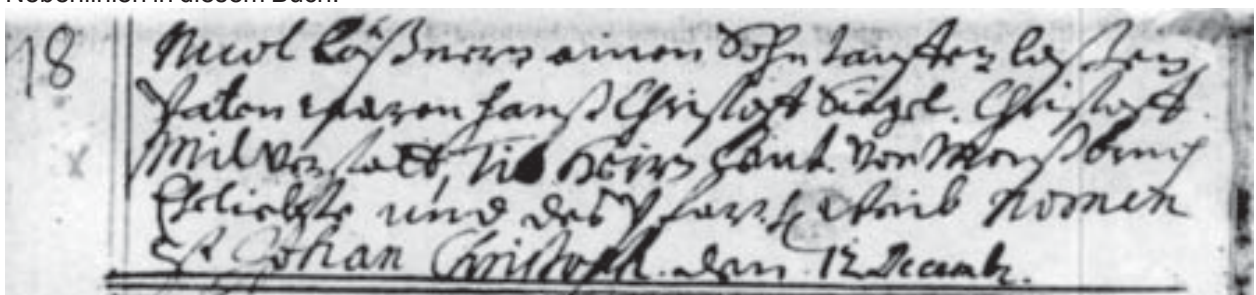 Nebenlinien in diesem Buch.
18 Nicol Läßnern einen Sohn tauffen laßen
Paten waren Hanß Christoff Siegel. Christoff
des Herrn Leut. von
Eheliebste und des Pfarr. Weib nomen
est Johan Christoph. den 12 Decemb.